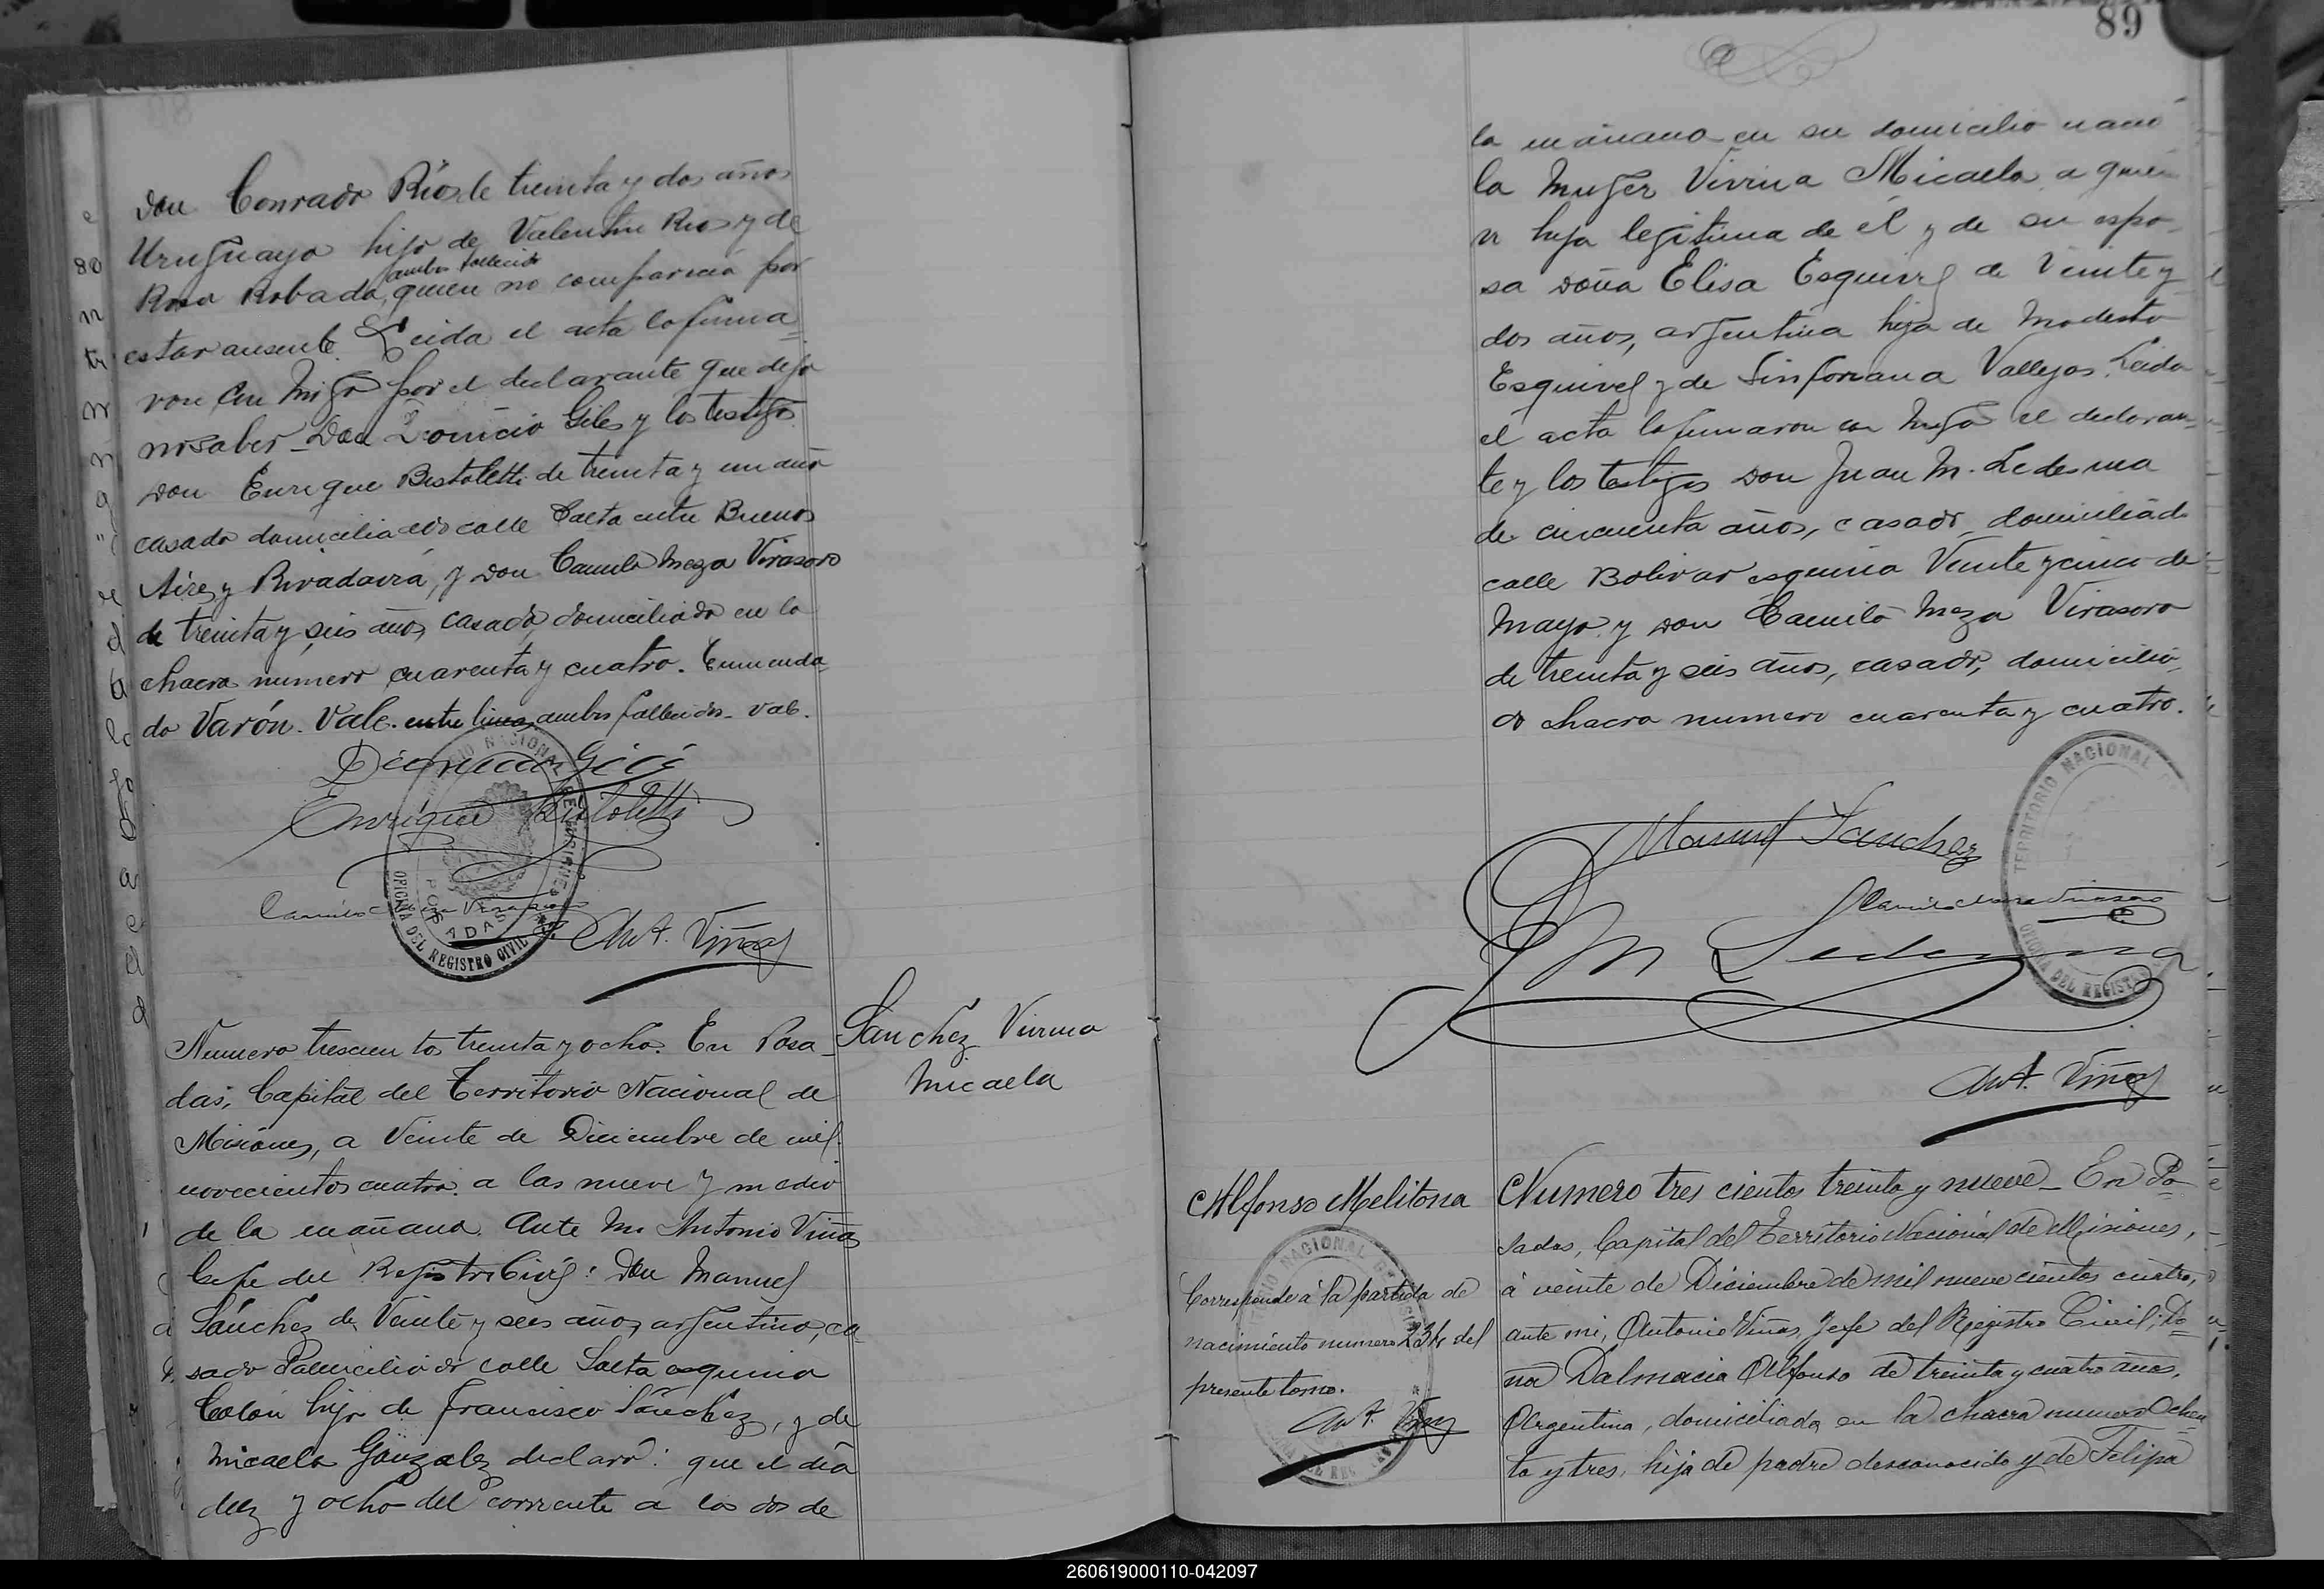 don Conrado Rios de treinta y dos años
Uruguayo hijo de Valentin Rios y de
Rosa Robada, quien no compareció por
ambos fallecidos
estar ausente. Leida el acta la firma=
ron con migo por el declarante que dijo
no saber - Don Dionicio Giles y los testigos
don Enrique Bistoletti de treinta y un año
casado domiciliado calle Salta entre Buenos
Aires y Rivadavia, y don Camilo Meza Virasoro
de treinta y seis años, casado, domiciliado en la
chacra número cuarenta y cuatro. Enmenda-
do Varón. Vale. entre linea ambos fallecidos - vale.
Enrique Bistoletti
Camilo Meza Virasoro
Ant. Viñas
TERRITORIO NACIONAL DE MISIONES
POSADAS
OFICINA DEL REGISTRO CIVIL
Sanchez Virina
Micaela
Numero trescientos treinta y ocho. En Posa-
das, Capital del Territorio Nacional de
Misiones, a Veinte de Diciembre de mil
novecientos cuatro. a las nueve y media
de la mañana. Ante mi Antonio Viñas
Gefe del Registro Civil: Don Manuel
Sánchez de Veinte y seis años, argentino, ca
sado domiciliado calle Salta esquina
Colón hijo de Francisco Sánchez, y de
Micaela Gonzalez declaró: que el día
diez y ocho del corriente a las dos de
89
la mañana en su domicilio nació
la muger Virina Micaela a quien
hija legitima de él y de su espo-
sa doña Elisa Esquivel de Veinte y
dos años, argentina hija de Modesto
Esquivel y de Sinforiana Vallejos. Leida
el acta la firmaron con migo el declaran-
te y los testigos don Juan M. Ledesma
de cincuenta años, casado, domiciliado
calle Bolivar esquina Veinte y cinco de
Mayo y don Camilo Meza Virasoro
de treinta y seis años, casado, domicilia-
do chacra numero cuarenta y cuatro.
Manuel Sanchez
Camilo Meza Virasoro
J M Ledesma
TERRITORIO NACIONAL
OFICINA DEL REGISTRO
Ant. Viñas
Alfonso Melitona
Corresponde á la partida de
nacimiento numero 234 del
presente tomo.
Ant. Viñas
Numero tres cientos treinta y nueve - En Po-
sadas, Capital del Territorio Nacional de Misiones,
á veinte de Diciembre de mil nueve cientos cuatro,
ante mi, Antonio Viñas, Jefe del Registro Civil; Do-
ña Dalmacia Alfonso de treinta y cuatro años,
Argentina, domiciliada en la chacra numero Ochen
ta y tres, hija de padre desconocido y de Felipa
260619000110-042097